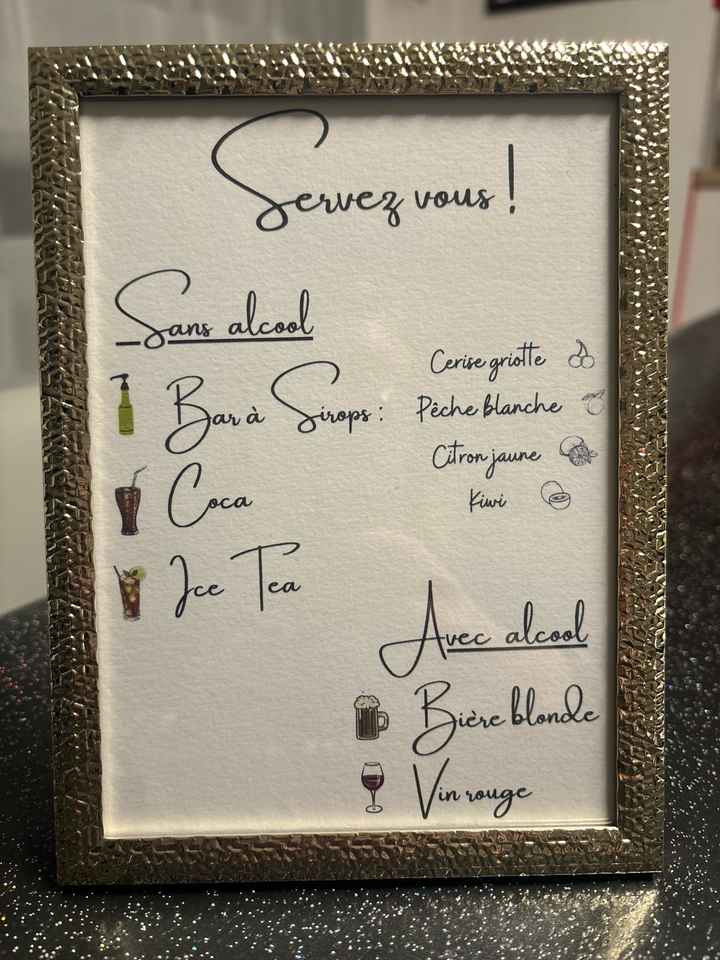 Servez vous !
Sans alcool
Bar à Sirops :
Cerise griotte
Pêche blanche
Citron jaune
Kiwi
Coca
Ice Tea
Avec alcool
Bière blonde
Vin rouge